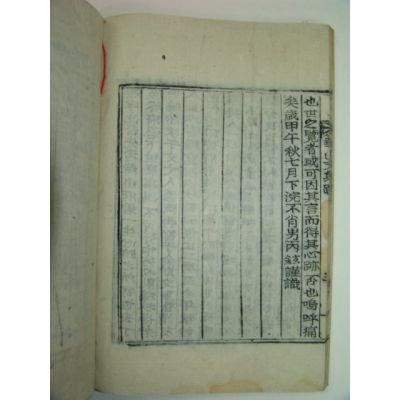 也世之覽者或可因其言而得其心跡否也嗚呼痛
矣歲甲午秋七月下浣不肖男丙謹識